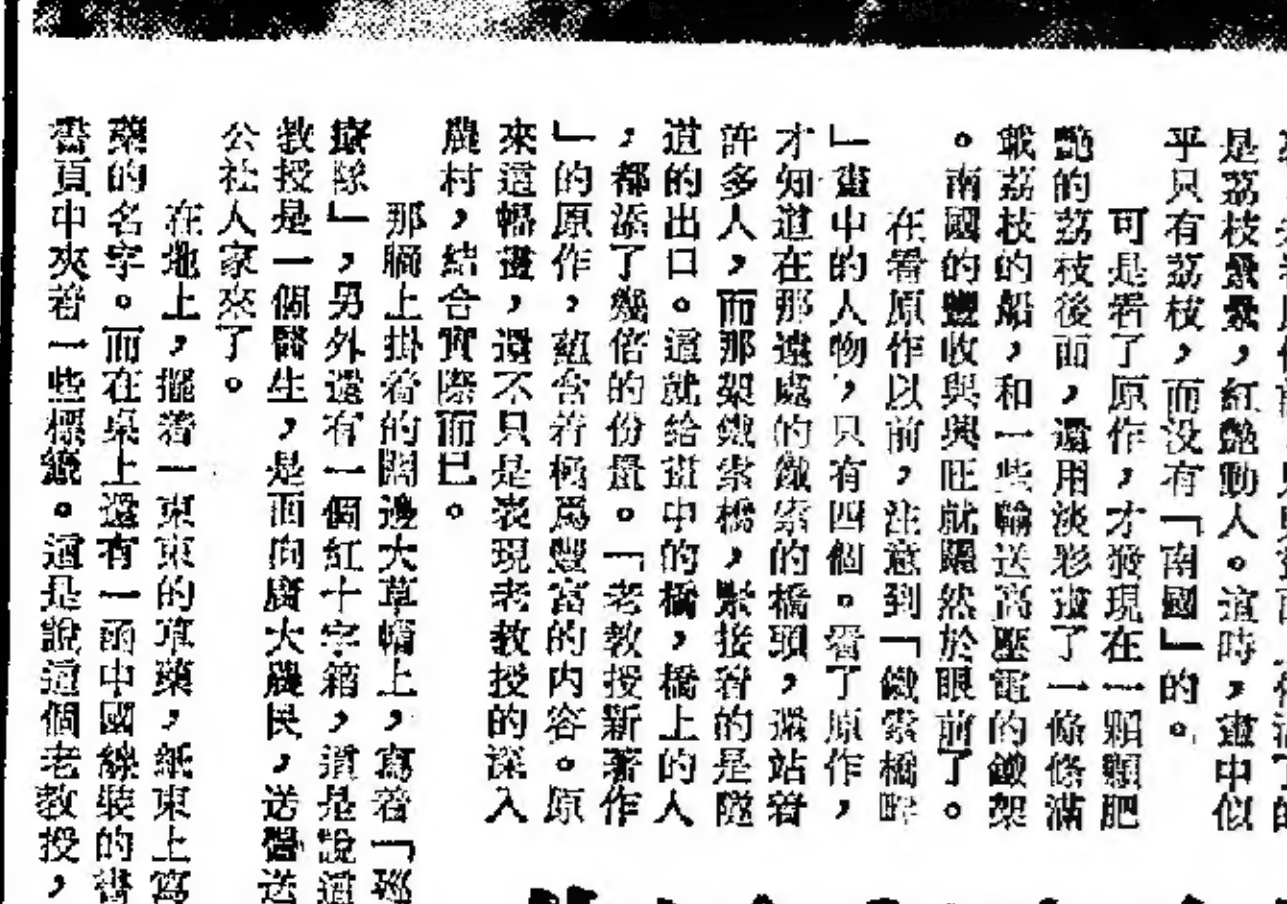 是荔枝纍纍，紅艷動人。這時，畫中似
乎只有荔枝，而没有「南國」的。
可是看了原作，才發現在一顆顆肥
艷的荔枝後面，還用淡彩畫了一條條滿
載荔枝的船，和一些輸送高壓電的鐵架
。南國的豐收與興旺就顯然於眼前了。
在看原作以前，注意到「鐵索橋畔
」畫中的人物，只有四個。看了原作，
才知道在那遠處的鐵索的橋頭，還站着
許多人，而那架鐵索橋，緊接着的是隧
道的出口。這就給畫中的橋，橋上的人
，都添了幾倍的份量。「老教授新著作
」的原作，蘊含着極爲豐富的內容。原
來這幅畫，還不只是表現老教授的深入
農村，結合實際而已。
那牆上掛着的闊邊大草帽上，寫着「巡
療隊」，另外還有一個紅十字箱，這是說這
教授是一個醫生，是面向廣大農民，送醫送
公社人家來了。
在地上，擺着一束束的草藥，紙束上寫
藥的名字。而在桌上還有一函中國線裝的書
書頁中夾着一些標籤。這是說這個老教授，